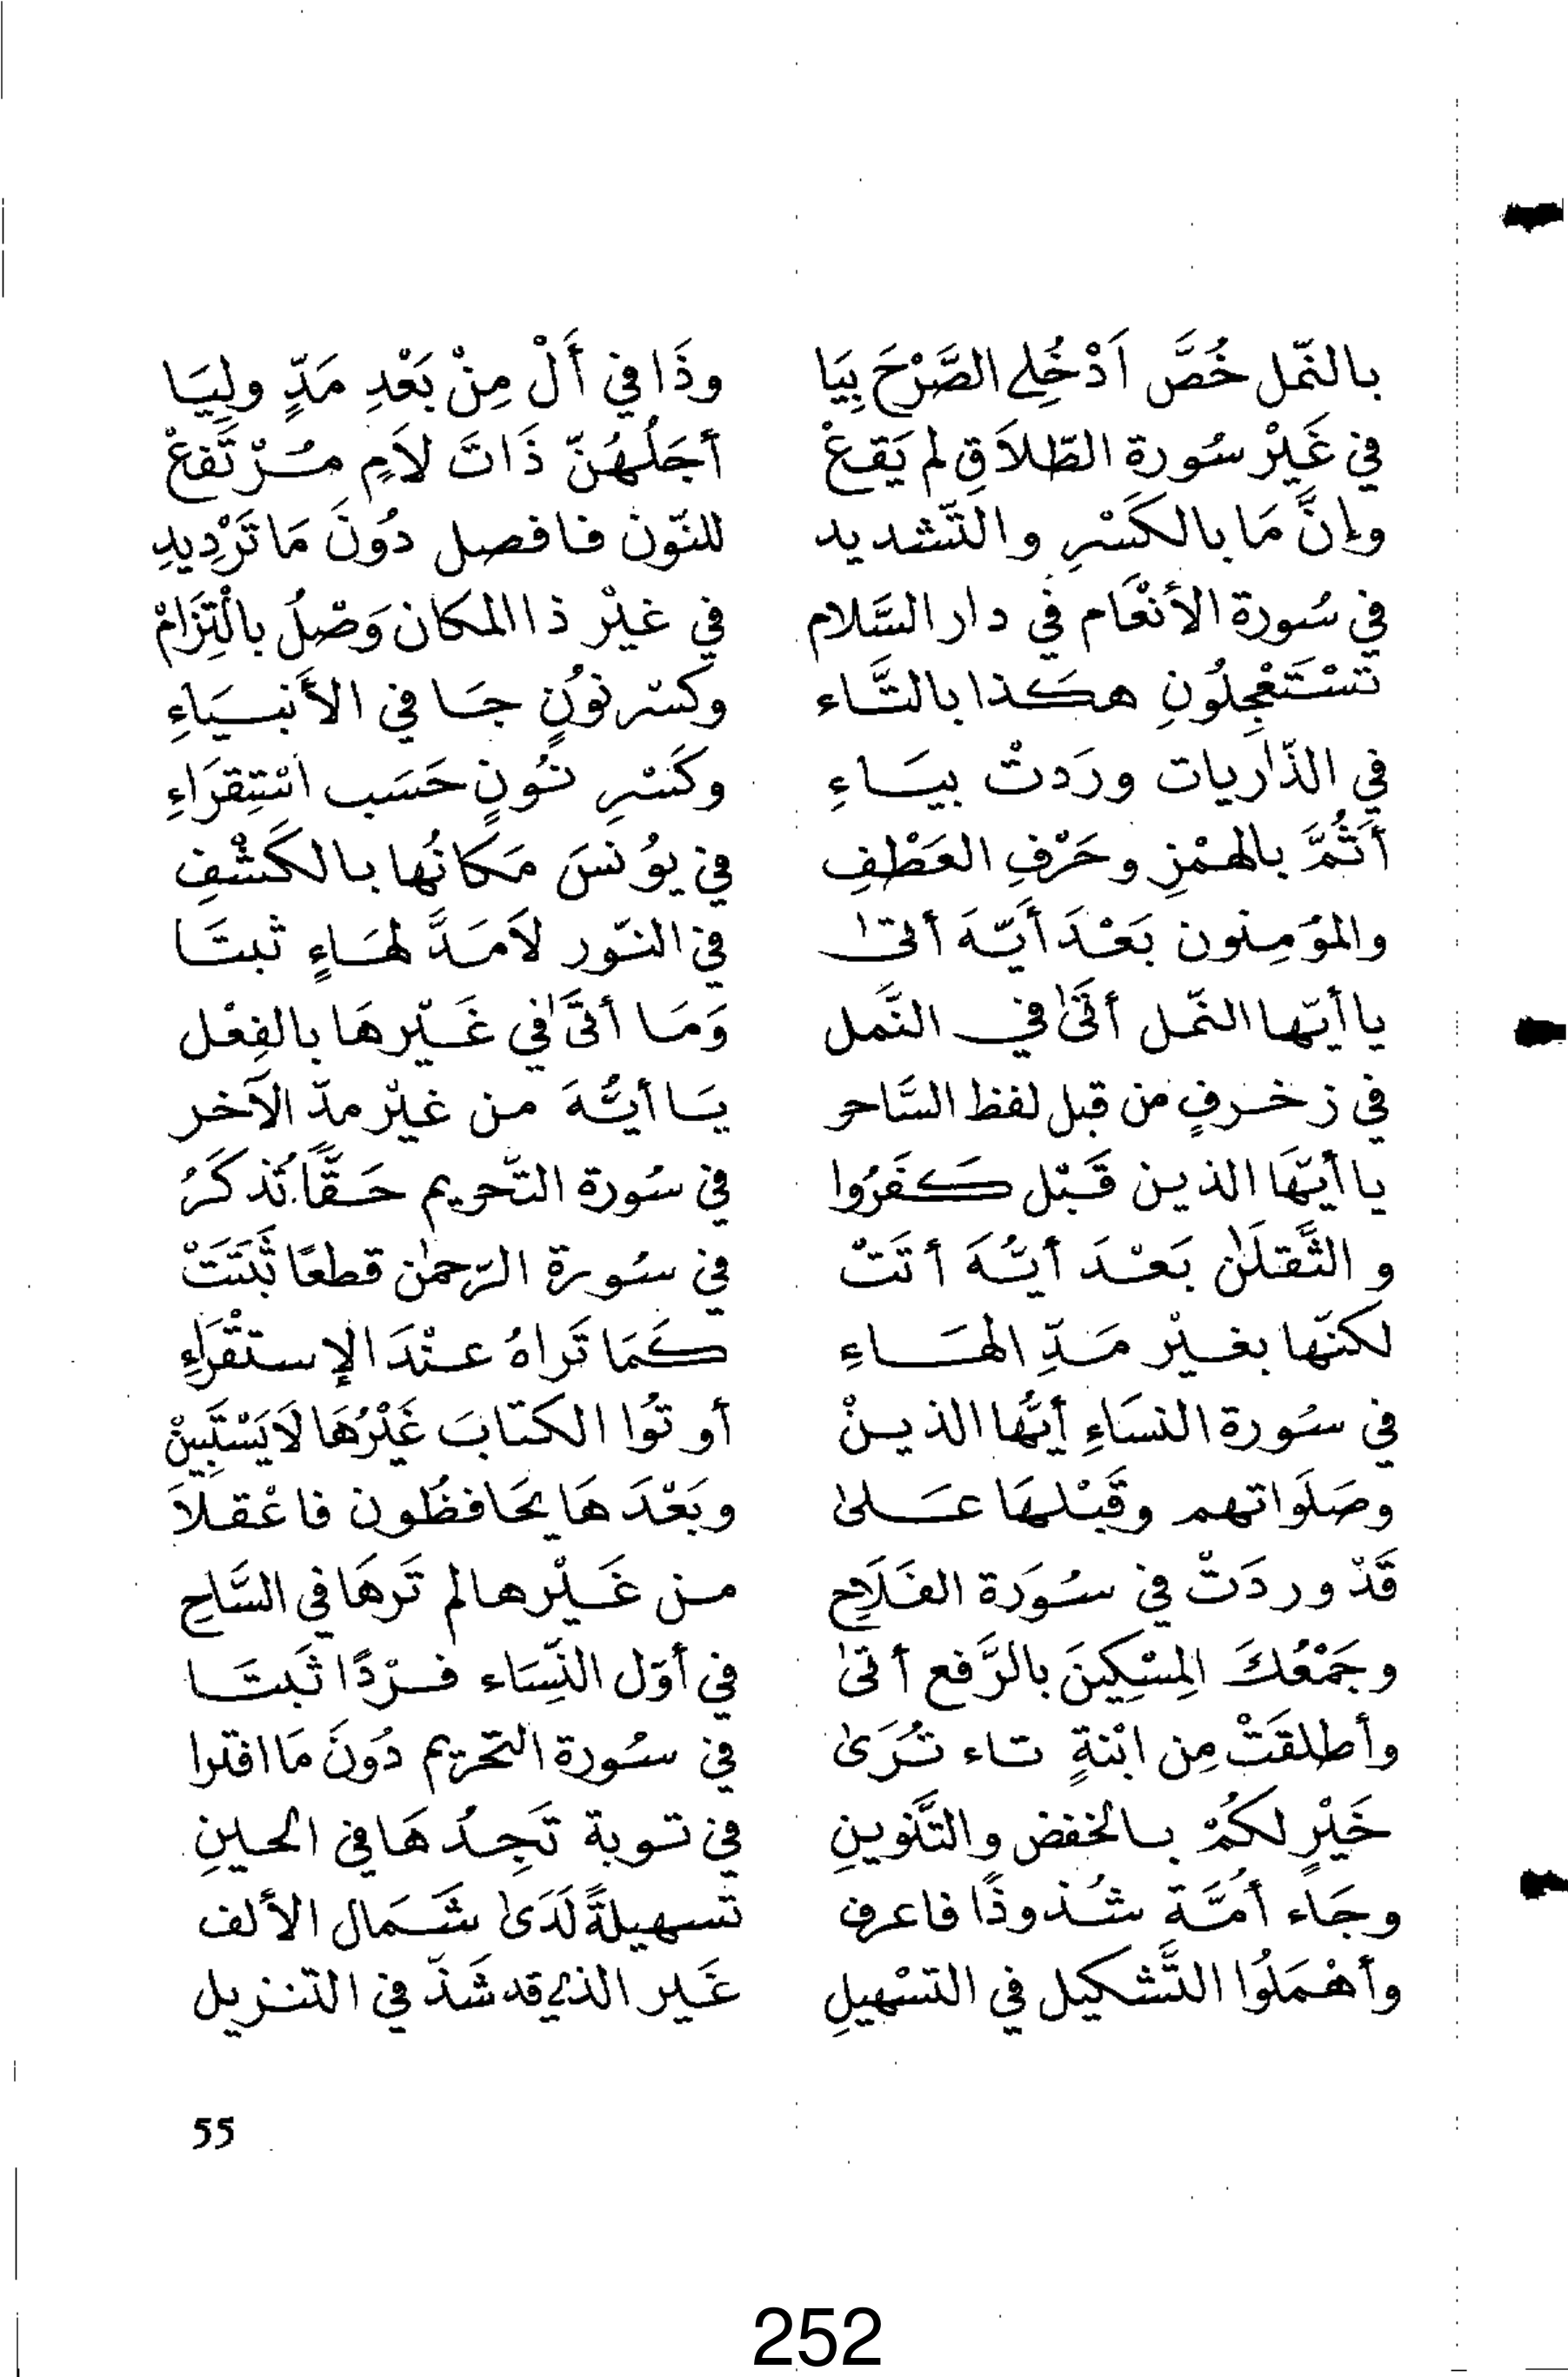 بالنّمل خُصَّ اَدْخُلِے الصَّرْحَ بِيَا وذَا في أَلْ مِنْ بَعْدِ مَدٍّ ولِيَـا
في غَيْر سُورة الطّلاَقِ لم يَقعْ أجَلُهُنّ ذَاتَ لاَمٍ مُـرْتَفعْ
وإنَّ مَا بالكَسْرِ والتّشديد للنّون فـافصل دُونَ مَا تَرْدِيدِ
في سُورة الأنْعَام في دار السَّلام في غيْر ذا المكان وَصْلُ بالْتِزَامْ
تَسْتَعْجِلُونِ هكذا بالتَّـاء وكسْر نُونٍ جَـا في الأَنبـيَاءِ
في الذّاريات ورَدتْ بيَـاءِ وكَسْرِ نُونٍ حَسَب اسْتِقرَاءِ
أثُمَّ بالهمْزِ وحَرْفِ العَطْفِ في يوُنسَ مَكانُها بالكَشْفِ
والموُمِنون بَعْدَ أَيّـهَ أتىٰ في النّـور لاَمَـدَّ لهَـاءٍ ثبتَـا
يا أيّها النّمل أتَىٰ في النَّمل وَمَـا أتَىٰ في غَـيْرهَا بالفِعْل
في زخـرفٍ من قبل لفظ السَّاحر يَـا أيُّـهَ من غيْر مدّ الآخر
يا أيّهَا الذين قَـبْل كَفَرُوا في سُورة التّحريم حَـقًّا تُذكَرُ
والثَّقلَىٰن بَعْـدَ أيُّـهَ أتَتْ في سُورة الرّحمٰن قطعًا ثَبَتَتْ
لكنّها بغـيْر مَـدِّ الهَـاءِ كَمَا تَراهُ عـنْدَ الإستقْرَاءِ
في سُورة النسَاءِ أيُّها الذيـنْ أوتُوا الكتابَ غَيْرُهَا لاَ يَسْتَبِينْ
وصَلَواتهم وقَبْلهَا عَـلىٰ وبَعْدَ هَا يحَافظُون فاعْقـلاَ
قَدْ وردَتْ في سُورَة الفَلَاحِ مـن غَـيْرها لم تَرهَا في السَّاحِ
وجَمْعُكَ المِسْكِينَ بالرَّفع أتىٰ في أوّل النِّسَاء فـرْدًا ثَبتَـا
وأطلقَتْ مِن ابْنةٍ تـاء تُـرَىٰ في سُورة التحريم دُونَ مَا افترا
خَيْرٍ لكُمْ بـالخفض والتَّنوينِ في تـوبة تَجِـدُ هَا في الحـينِ
وجَاء أمَّـة شُـذوذًا فاعرف تسهيلةً لَدَىٰ شَـمَال الألف
وأهْمَلُوا التَّشكيل في التسْهيلِ غَـير الذي قد شَذّ في التنـزيل
55
252